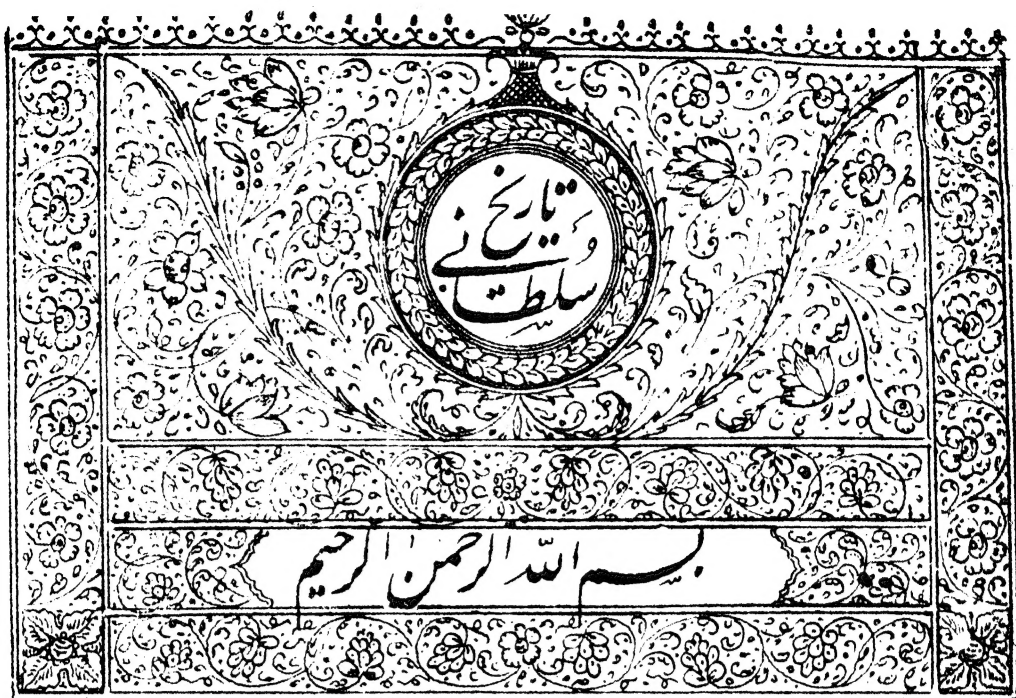 تاریخ
سُلطانی
بسم الله الرحمن الرحیم